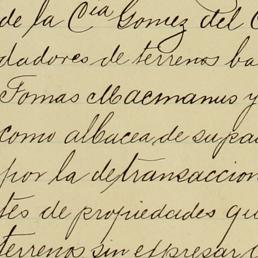 de la Cía Gomez del C
dadores de terrenos ba
Tomas Macmanus y
como albacea, de su pa
por la de transaccion
tes de propiedades qu
terrenos sin expresar